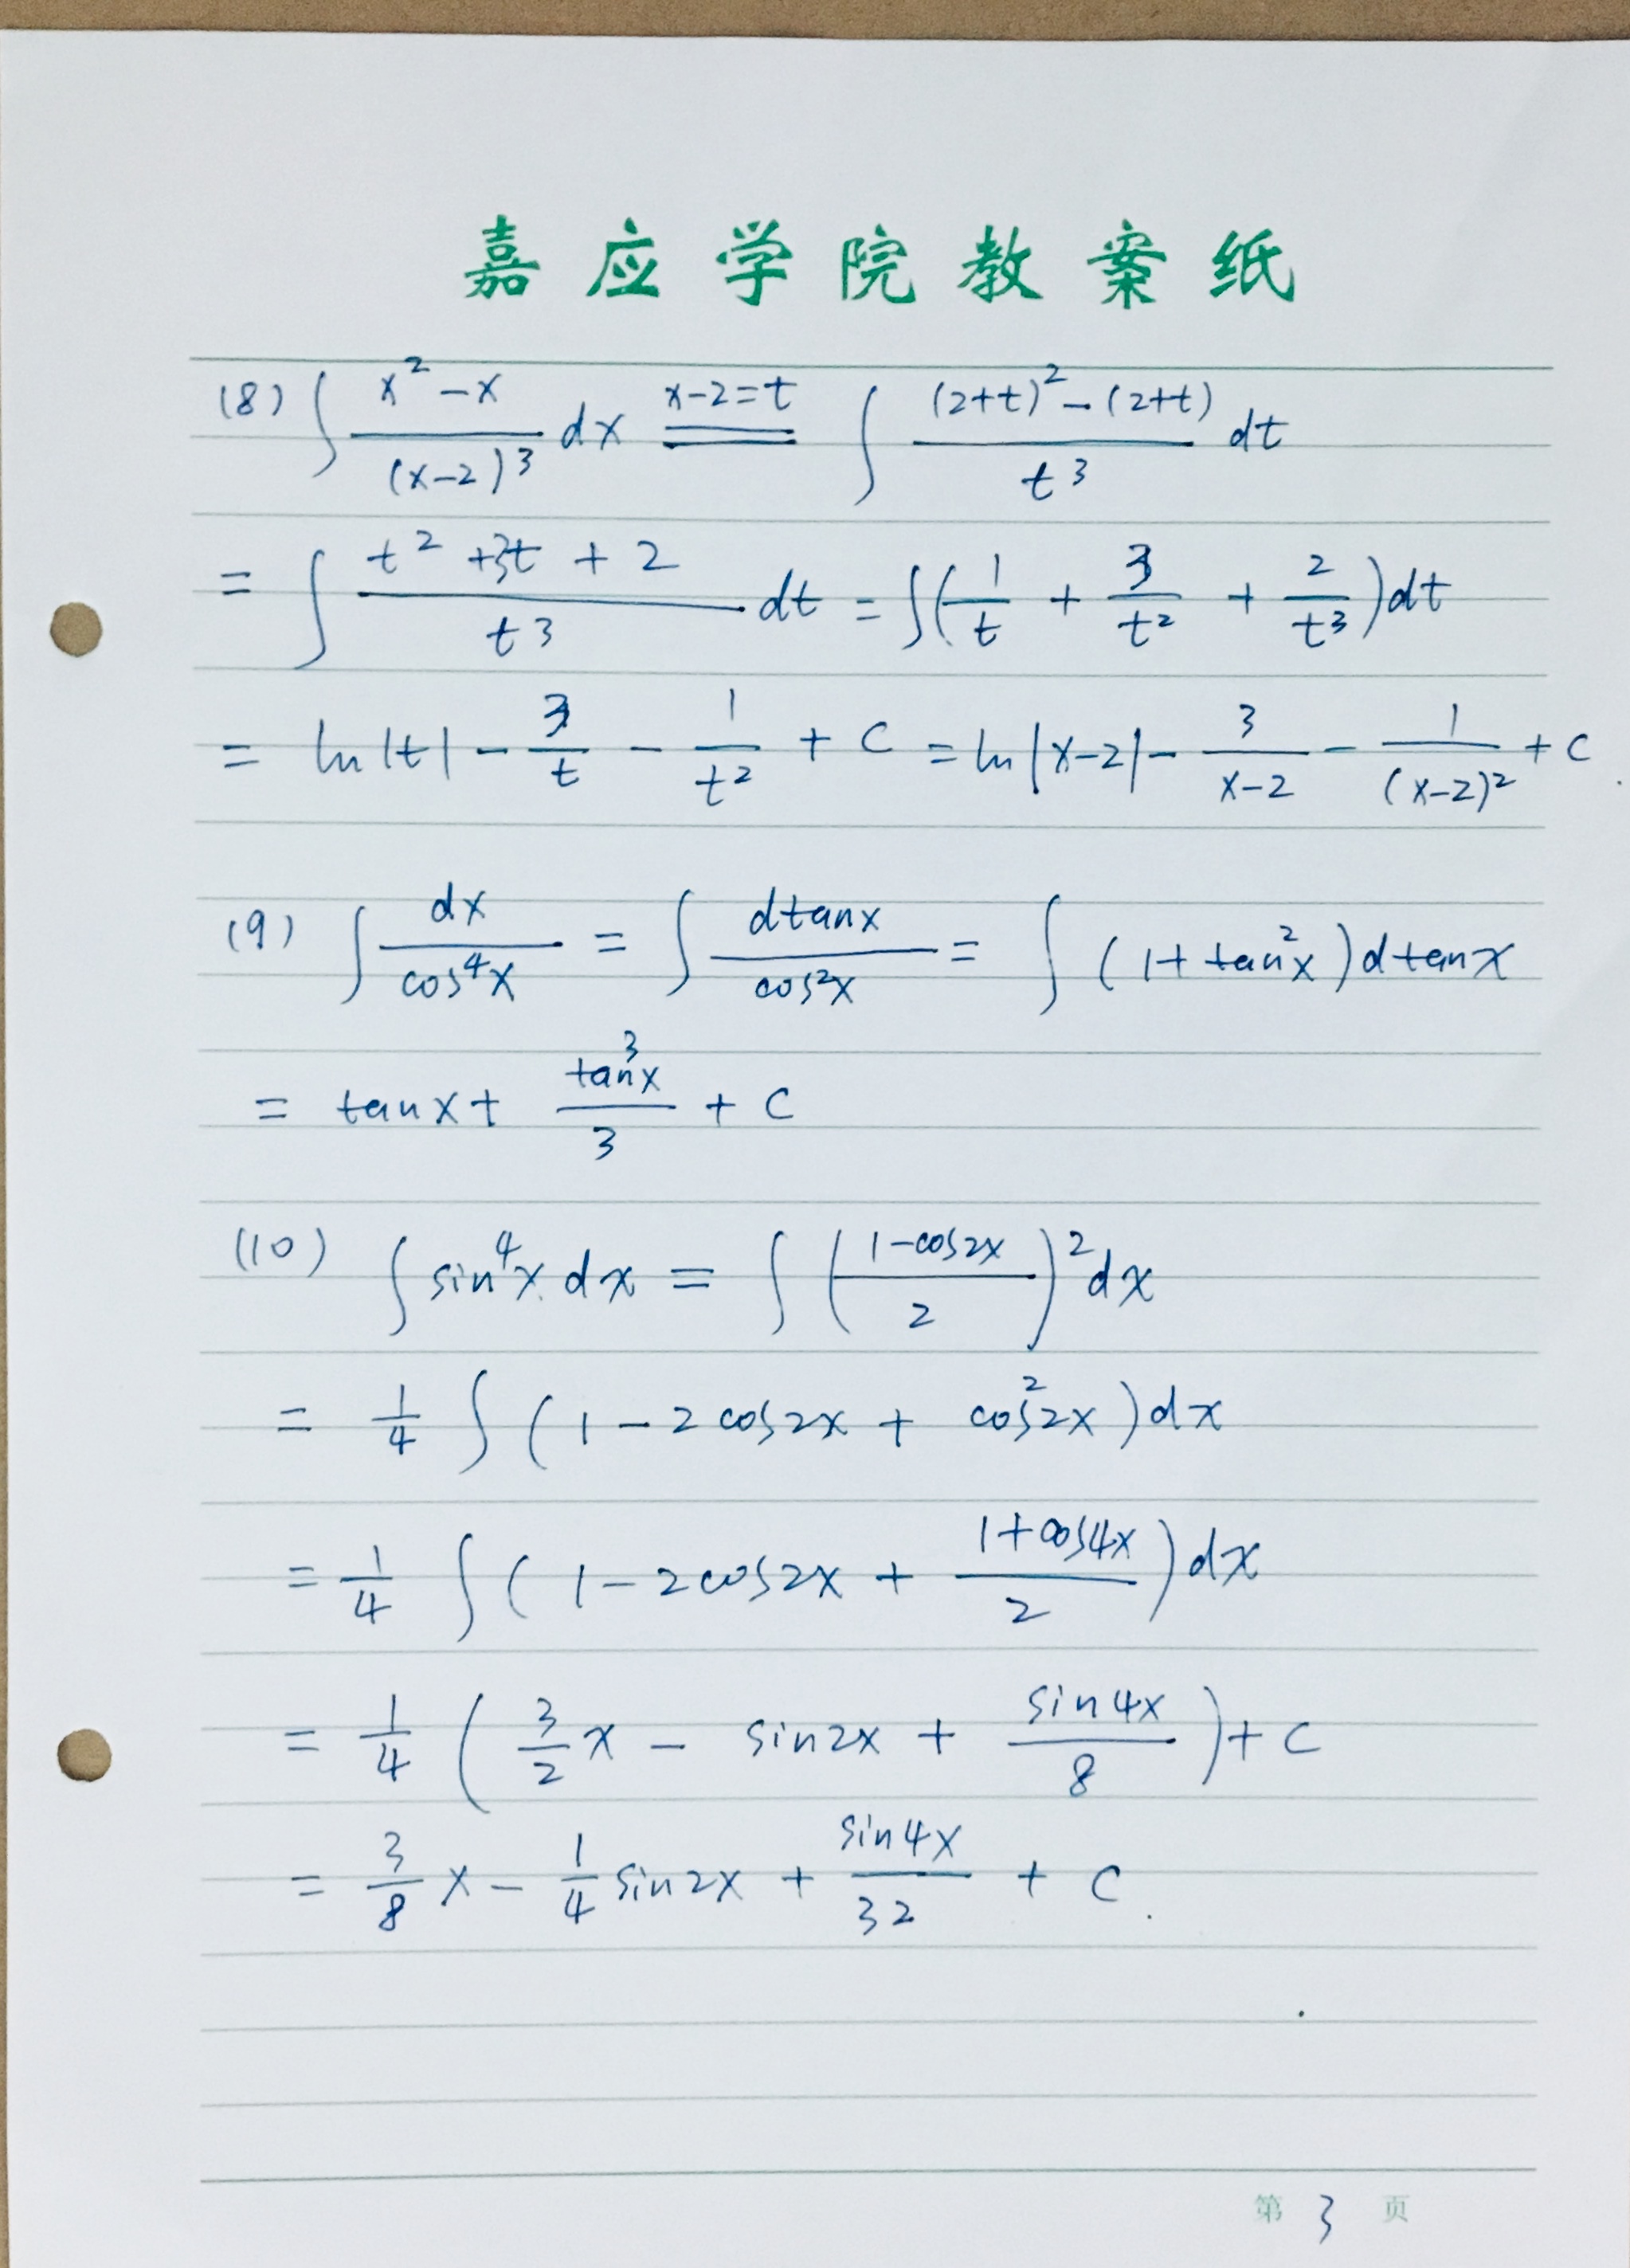 嘉应学院教案纸
(8) ∫ (x² − x)/(x−2)³ dx =(x−2=t)= ∫ ((2+t)² − (2+t))/t³ dt
= ∫ (t² + 3t + 2)/t³ dt = ∫(1/t + 3/t² + 2/t³)dt
= ln|t| − 3/t − 1/t² + C = ln|x−2| − 3/(x−2) − 1/(x−2)² + C
(9) ∫ dx/cos⁴x = ∫ dtanx/cos²x = ∫ (1+tan²x)dtanx
= tanx + tan³x/3 + C
(10) ∫ sin⁴x dx = ∫ ((1−cos2x)/2)² dx
= 1/4 ∫ (1 − 2cos2x + cos²2x)dx
= 1/4 ∫ (1 − 2cos2x + (1+cos4x)/2)dx
= 1/4 (3/2 x − sin2x + sin4x/8) + C
= 3/8 x − 1/4 sin2x + sin4x/32 + C.
第 3 页